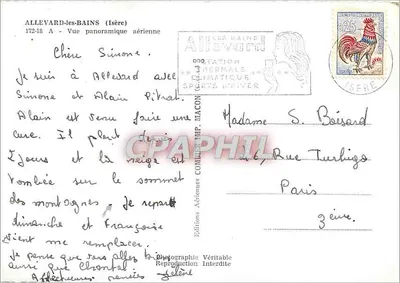 ALLEVARD-les-BAINS (Isère)
172-18 A - Vue panoramique aérienne
Chère Simone.
Je suis à Allevard avec
Simone et Alain Pitrat.
Alain est venu faire une
cure. Il pleut depuis
2 jours et la neige est
tombée sur le sommet
des montagnes. Je repars
dimanche et Françoise
vient me remplacer.
Je pense que vous allez bien
ainsi que Chantal.
Affectueuses pensées Hélène
Editions Aériennes COMBIER IMP. MACON
Photographie Véritable
Reproduction Interdite
LES BAINS
Allevard
STATION
THERMALE
CLIMATIQUE
SPORTS D'HIVER
ISERE
Madame S. Boisard
26, Rue Turbigo
Paris
3ème.
CPAPHIL